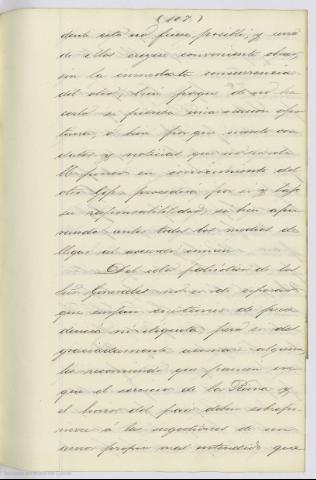 (107)
dente esto no fuese posible, y uno
de ellos creyese conveniente obrar
sin la inmediata concurrencia
del otro, bien porque de no ha-
cerlo se pierda una ocasion opor-
tuna, ó bien porque cuente con
datos y noticias que no
poner en conocimiento del
otro Jefe procederá por si y bajo
su responsabilidad, si bien apu-
rando antes todos los medios de
llegar al acuerdo comun.
Del alto patriotismo de los
Sres Generales no es de esperar
que surjan cuestiones de pree-
minencia ni etiqueta, pero si des-
graciadamente asomase alguna
les recomiendo que piensen en
que el servicio de la Reina y
el honor del pais deben sobrepo-
nerse á las sugestiones de un
amor propio mal entendido que